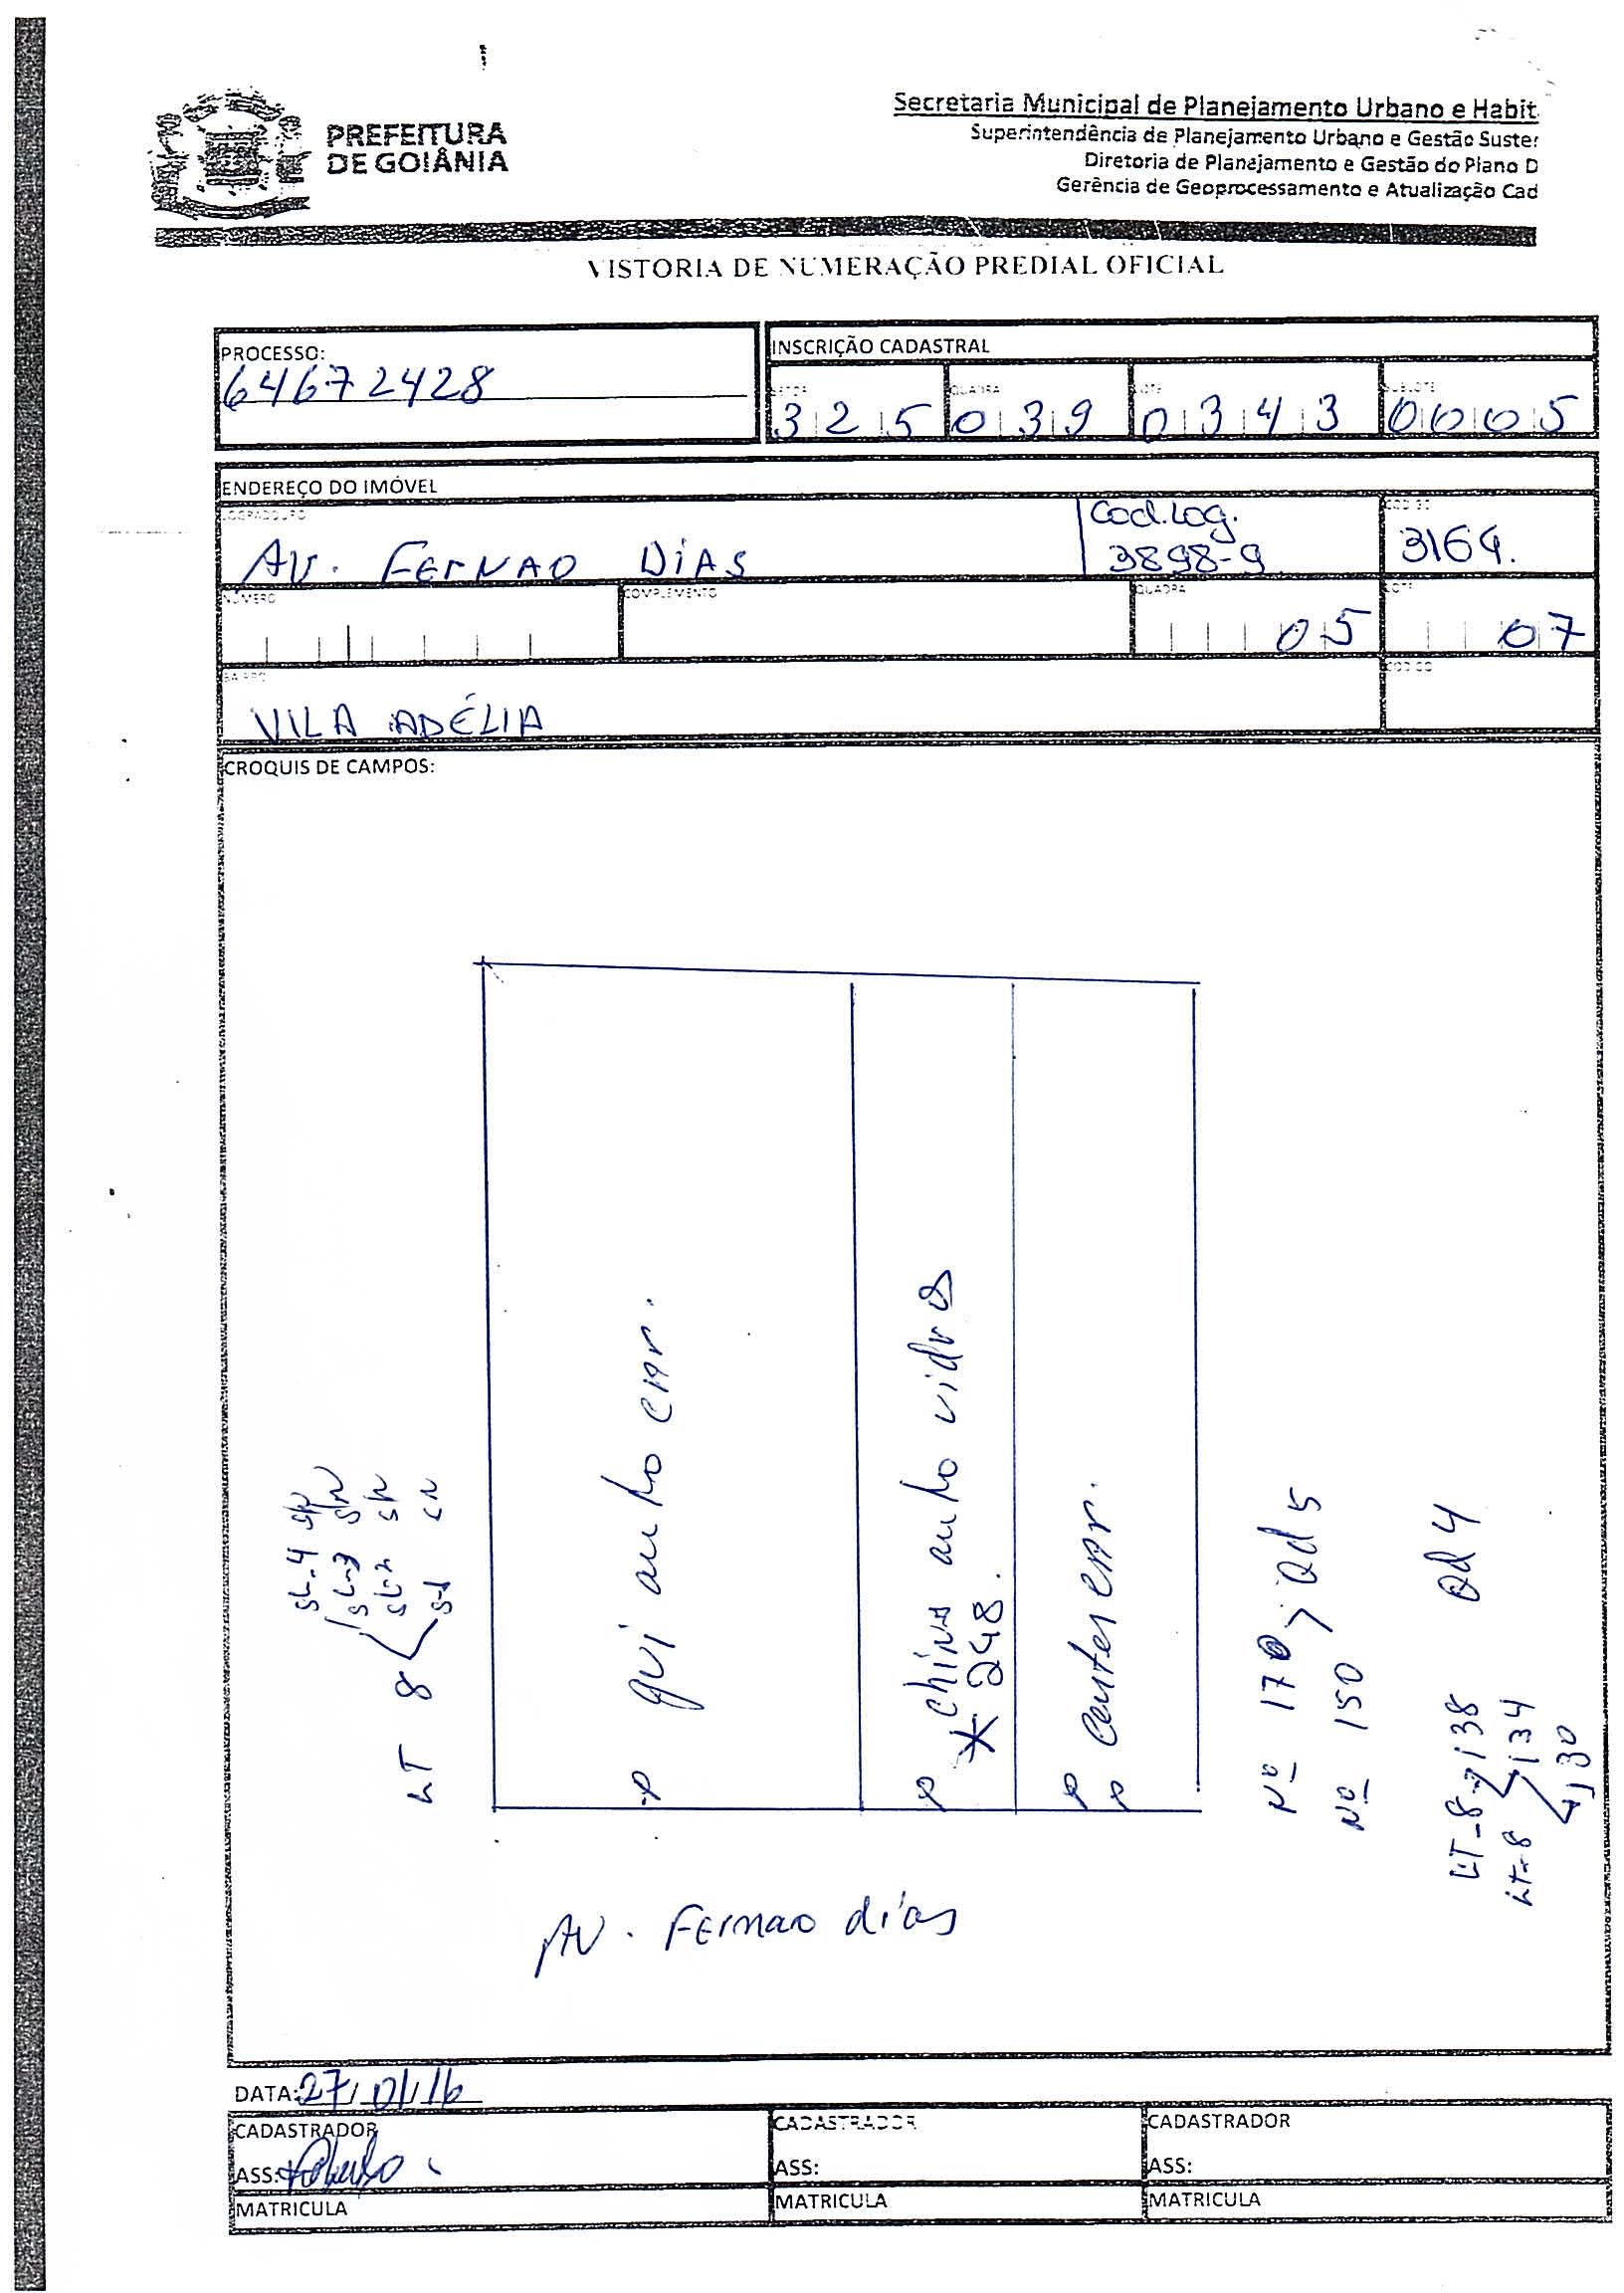 PREFEITURA
DE GOIÂNIA
Secretaria Municipal de Planejamento Urbano e Habit
Superintendência de Planejamento Urbano e Gestão Suster
Diretoria de Planejamento e Gestão do Plano D
Gerência de Geoprocessamento e Atualização Cad
VISTORIA DE NUMERAÇÃO PREDIAL OFICIAL
PROCESSO:
64672428
INSCRIÇÃO CADASTRAL
QUADRA LOTE SUBLOTE
325 039 0343 0005
ENDEREÇO DO IMÓVEL
LOGRADOURO
Cod.Log. CODIGO
AV. FERNAO DIAS 3898-9 3164.
NÚMERO COMPLEMENTO QUADRA LOTE
05 07
BAIRRO CODIGO
VILA ADÉLIA
CROQUIS DE CAMPOS:
SL-4 SN
SL-3 SN
SL-2 SN
S-1 SN
LT 8
qui auto
china auto vidros
* 248.
Center
Nº 170 Qd 5
Nº 150
Qd 4
LT-8 138
LT-8 134
130
AV. Fernao dias
DATA: 27/01/16
CADASTRADOR CADASTRADOR CADASTRADOR
ASS: ASS: ASS:
MATRICULA MATRICULA MATRICULA